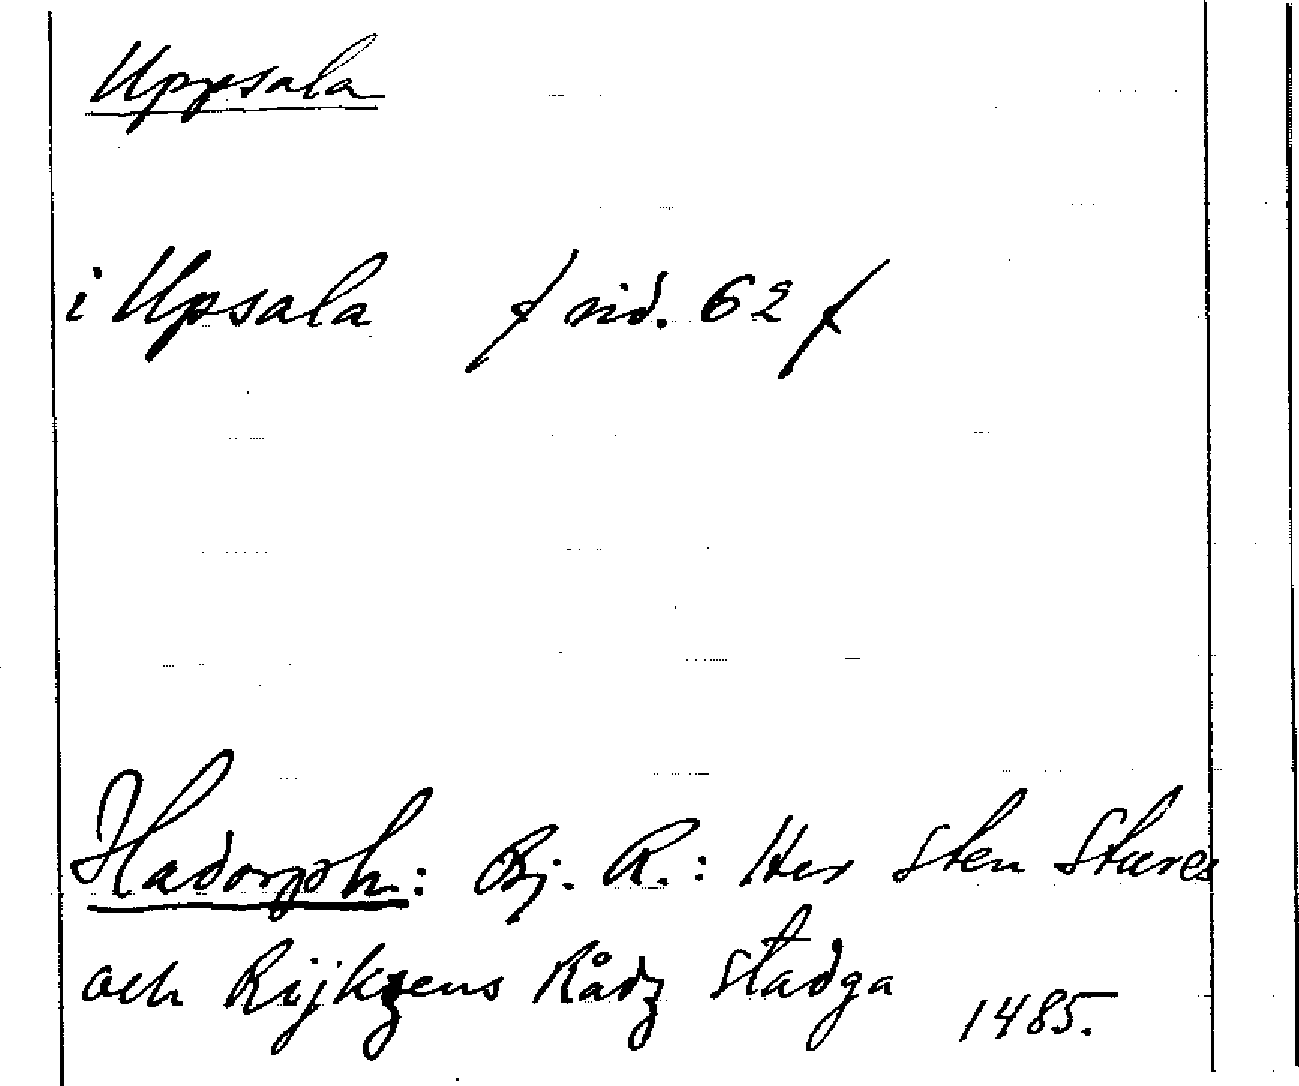 Uppsala
i Upsala / sid. 62 /
Hadorph: Bj. R.: Her Sten Stures
och Rijkzens Rådz Stadga 1485.